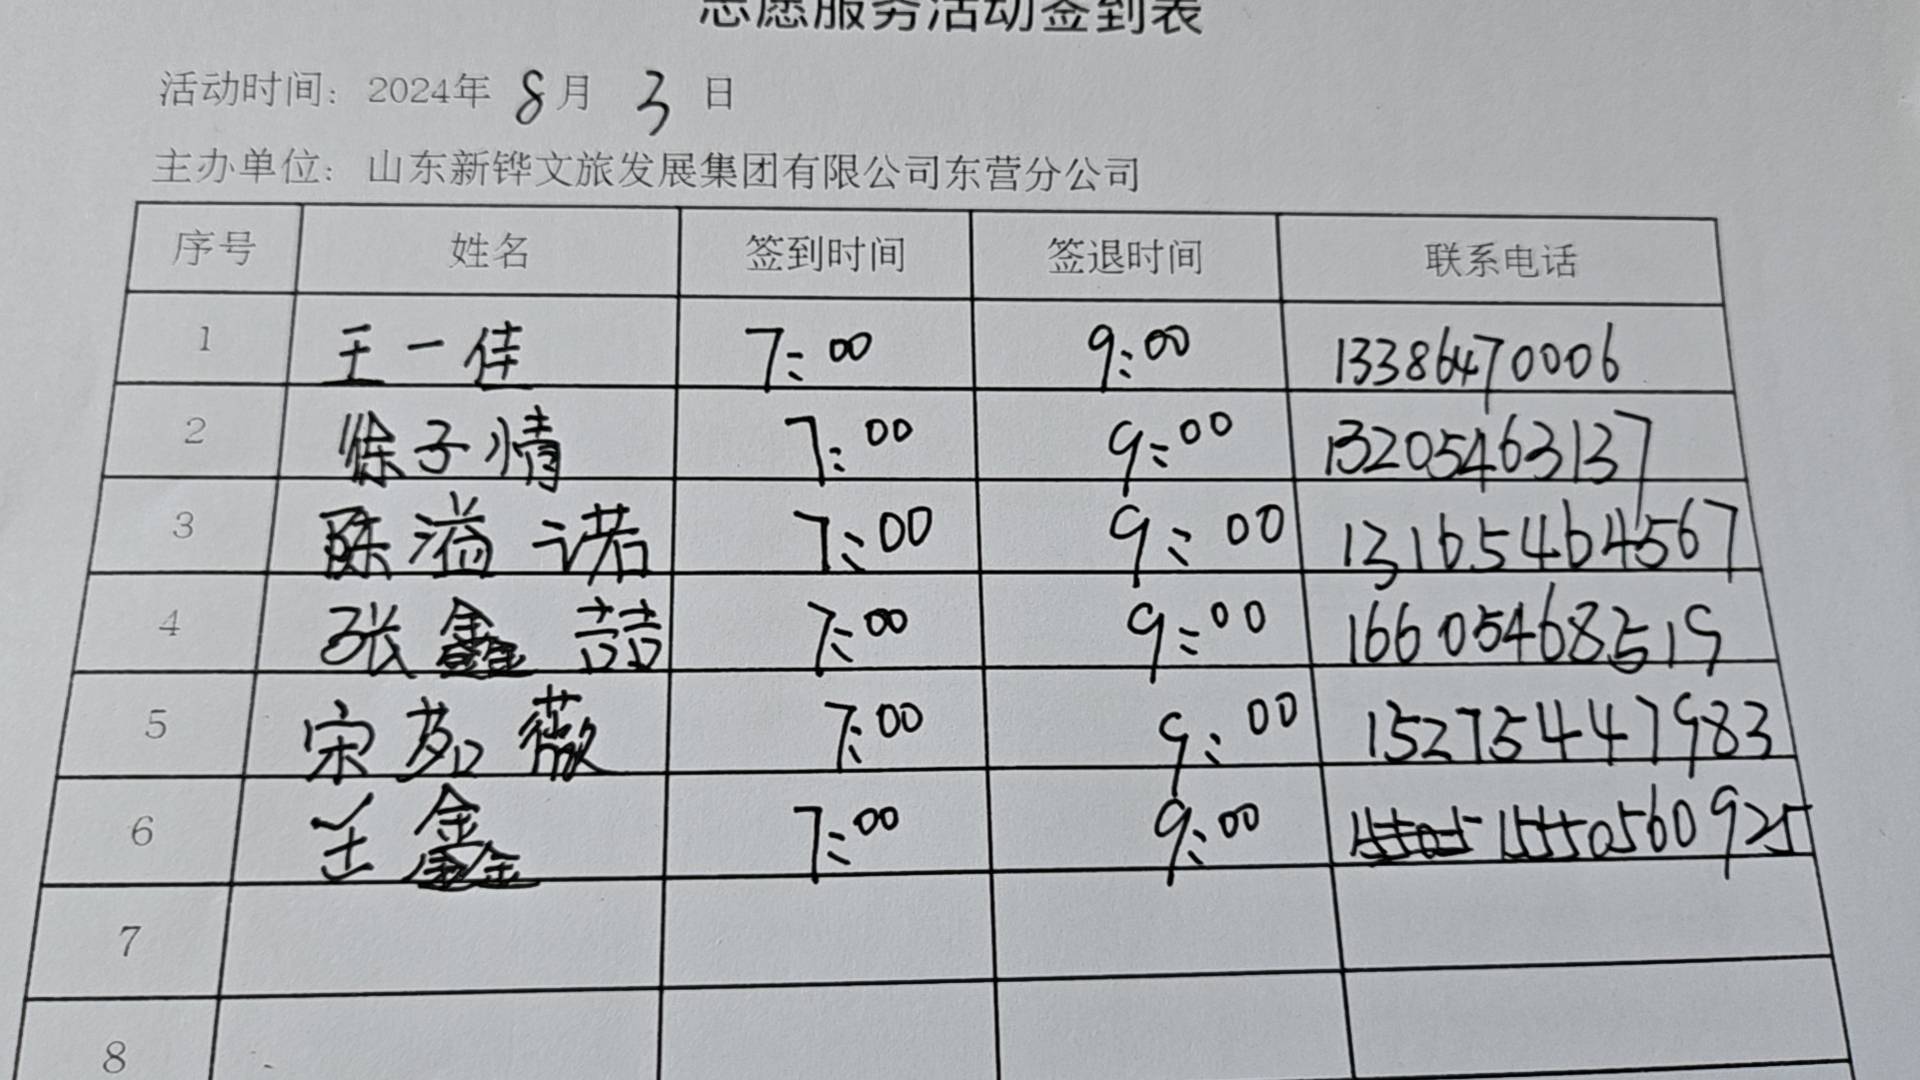 志愿服务活动签到表
活动时间：2024年 8月 3日
主办单位：山东新铧文旅发展集团有限公司东营分公司
序号 姓名 签到时间 签退时间 联系电话
1 王一佳 7:00 9:00 13386470006
2 徐子情 7:00 9:00 13205463137
3 陈溢诺 7:00 9:00 13165464567
4 张鑫喆 7:00 9:00 16605468519
5 宋茹薇 7:00 9:00 15275447983
6 王鑫 7:00 9:00 15550560925
7
8